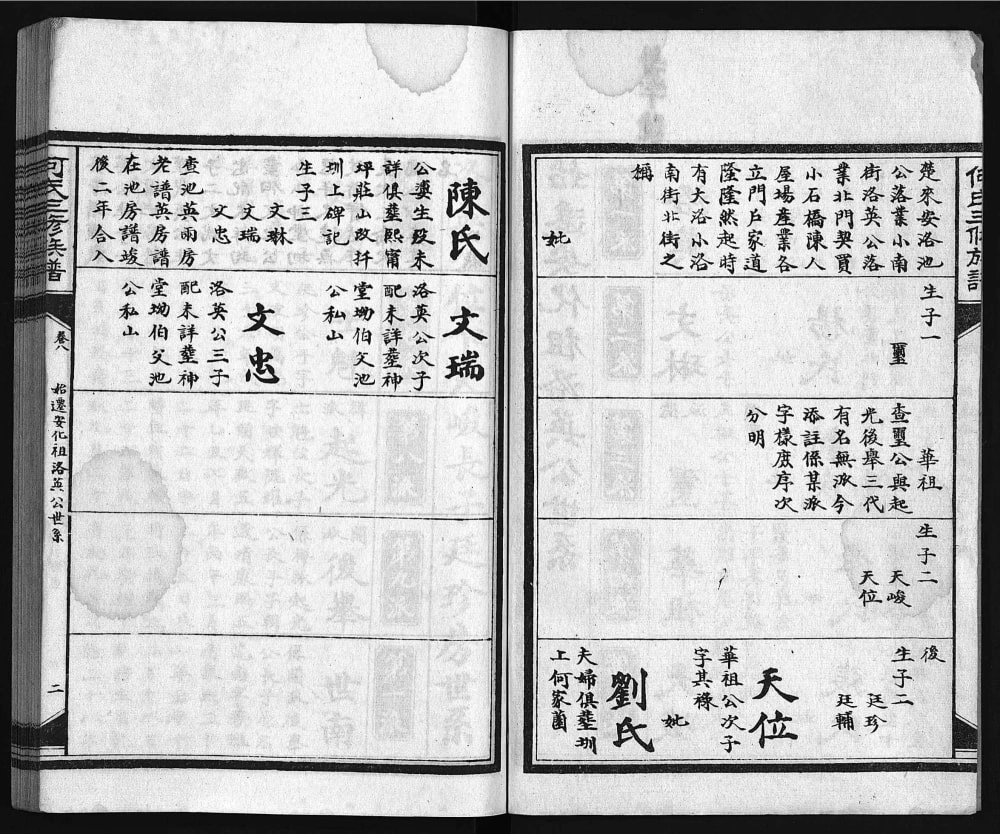 何氏三修族譜
楚來安洛池
公落業小南
街洛英公落
業北門契買
小石橋陳人
屋場產業各
立門戶家道
隆隆然起時
有大洛小洛
南街北街之
稱
妣
生子一
璽
華祖
查璽公與起
光後舉三代
有名無派今
添註係某派
字樣庶序次
分明
生子二
天峻
天位
後
生子二
廷珍
廷輔
天位
華祖公次子
字其祿
妣
劉氏
夫婦俱塟圳
上何家薗
陳氏
公婆生歿未
詳俱塟熙甯
坪莊山改扦
圳上碑記
生子三
文琳
文瑞
文忠
查池英兩房
老譜英房譜
在池房譜竣
後二年合入
文瑞
洛英公次子
配未詳塟神
堂坳伯父池
公私山
文忠
洛英公三子
配未詳塟神
堂坳伯父池
公私山
何氏三修族譜
卷八
始遷安化祖洛英公世系
二